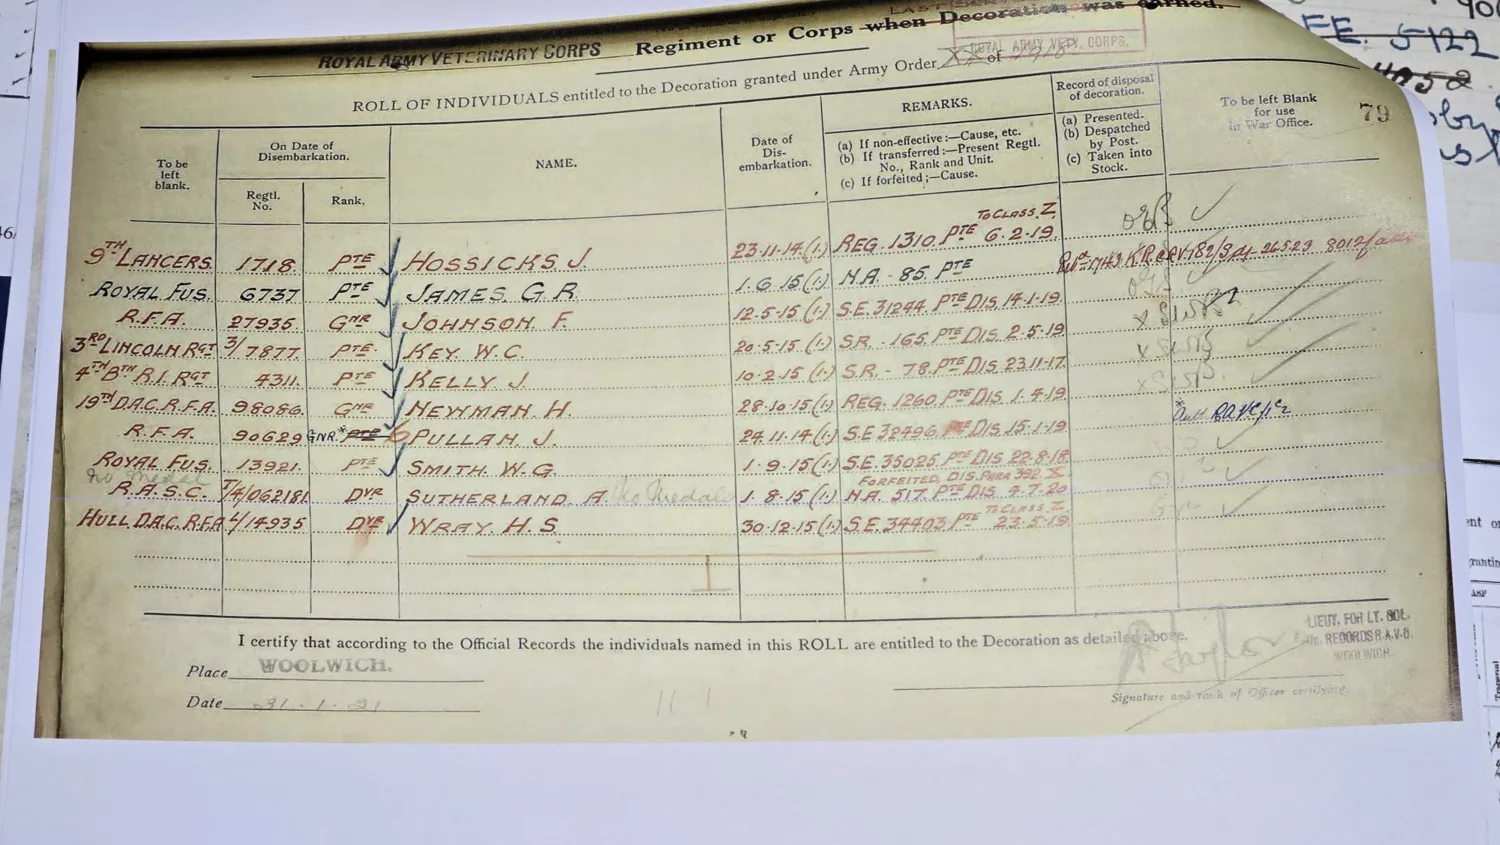 LAST
ROYAL ARMY VETERINARY CORPS Regiment or Corps when Decoration was earned.
ROYAL ARMY VETY. CORPS.
ROLL OF INDIVIDUALS entitled to the Decoration granted under Army Order XX of 1918
79
To be left blank.
On Date of Disembarkation.
Regtl. No.
Rank.
NAME.
Date of Dis-embarkation.
REMARKS.
(a) If non-effective:—Cause, etc.
(b) If transferred:—Present Regtl. No., Rank and Unit.
(c) If forfeited;—Cause.
Record of disposal of decoration.
(a) Presented.
(b) Despatched by Post.
(c) Taken into Stock.
To be left Blank for use in War Office.
TO CLASS. Z.
9TH LANCERS. 1718. PTE HOSSICKS. J. 23.11.14.(1.) REG. 1310. PTE 6.2.19.
ROYAL FUS. 6737 PTE JAMES. G.R. 1.6.15(1.) N.A - 85. PTE
R.F.A. 27935. GNR JOHNSON. F. 12.5.15(1.) S.E. 31244. PTE DIS. 14.1.19.
3RD LINCOLN RGT 3/7877. PTE. KEY. W.C. 20.5.15(1.) S.R. - 165. PTE DIS. 2.5.19.
4TH BTN R.I. RGT 4311. PTE KELLY. J. 10.2.15(1.) S.R. - 78. PTE DIS. 23.11.17.
19TH D.A.C. R.F.A. 98086. GNR NEWMAN. H. 28.10.15(1.) REG. 1260. PTE DIS. 1.4.19.
R.F.A. 90629 GNR.* PTE PULLAN. J. 24.11.14(1.) S.E 32496. PTE DIS. 15.1.19.
ROYAL FUS. 13921. PTE SMITH. W.G. 1.9.15(1.) S.E. 35025. PTE DIS. 22.8.18.
No Medal FORFEITED, DIS. PARA 392.
R.A.S.C. T/4/062181. DVR SUTHERLAND. A. No Medals 1.8.15(1.) N.A. 517. PTE DIS 4.7.20
TO CLASS. Z.
HULL D.A.C. R.F.A. L/14935 DVR WRAY. H.S. 30.12.15(1.) S.E. 34403. PTE 23.5.19.
I certify that according to the Official Records the individuals named in this ROLL are entitled to the Decoration as detailed above.
LIEUT. FOR LT. COL.
RECORDS R.A.V.C.
WOOLWICH.
Place WOOLWICH.
Date 31.1.21
Signature and rank of Officer certifying.
FE. 5422